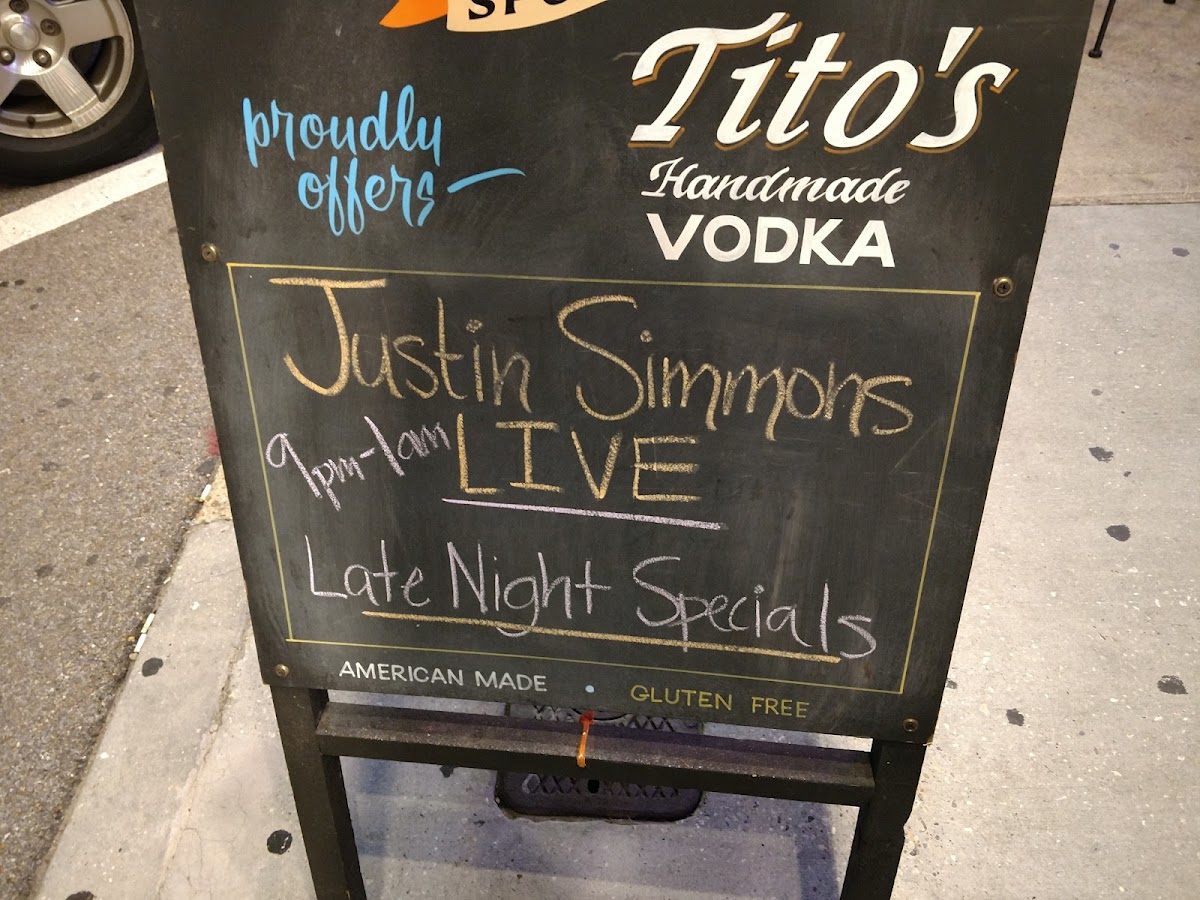 proudly
offers
Tito's
Handmade
VODKA
Justin Simmons
9pm-1am LIVE
Late Night Specials
AMERICAN MADE • GLUTEN FREE